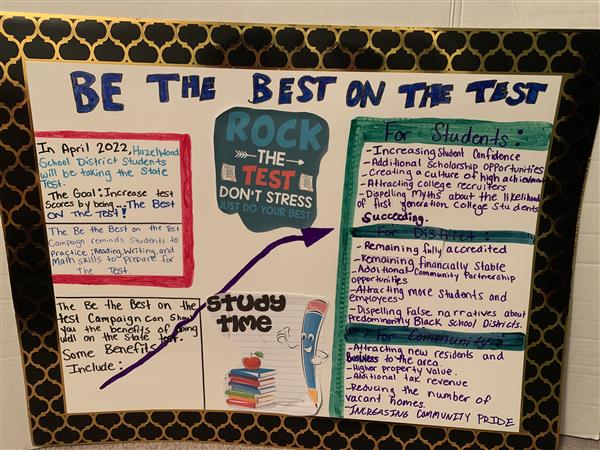 BE THE BEST ON THE TEST
In April 2022, Hazelwood
School District Students
will be taking the State
Test.
The Goal: Increase test
Scores by being... The Best
ON The Test!
The Be the Best on the Test
Campaign reminds Students to
practice; Reading, Writing, and
Math skills to prepare for
The Test.
The Be the Best on the
test Campaign can Show
you the benefits of being
well on the State test.
Some Benefits
Include:
ROCK
THE
TEST
DON'T STRESS
JUST DO YOUR BEST
STUDY
TIME
For Students:
-Increasing Student Confidence
-Additional Scholarship opportunities
-Creating a culture of high achievment
-Attracting college recruiters
-Dispelling Myths about the likelihood
of first generation College Students
Succeeding.
For District:
-Remaining fully accredited
-Remaining financially Stable
-Additional Community Partnership
opportunities
-Attracting more Students and
employees
-Dispelling False narratives about
Predominantly Black school Districts.
For Community:
-Attracting new residents and
business to the area.
-Higher property value.
-Additional tax revenue
-Reducing the number of
vacant homes.
-INCREASING COMMUNITY PRIDE